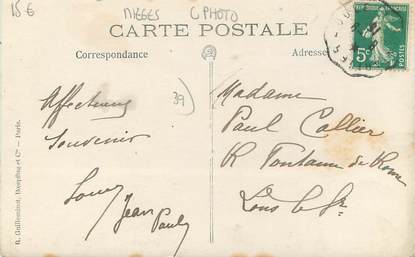 15 €
MIEGES C PHOTO
CARTE POSTALE
Correspondance
Adresse
RÉPUBLIQUE FRANÇAISE
5c
POSTES
39
Affectueux
Souvenir
Jean Paul
Madame
Paul Callier
R Fontaine de Rome
Lons le Sr
R. Guilleminot, Boespflug et Cie - Paris.